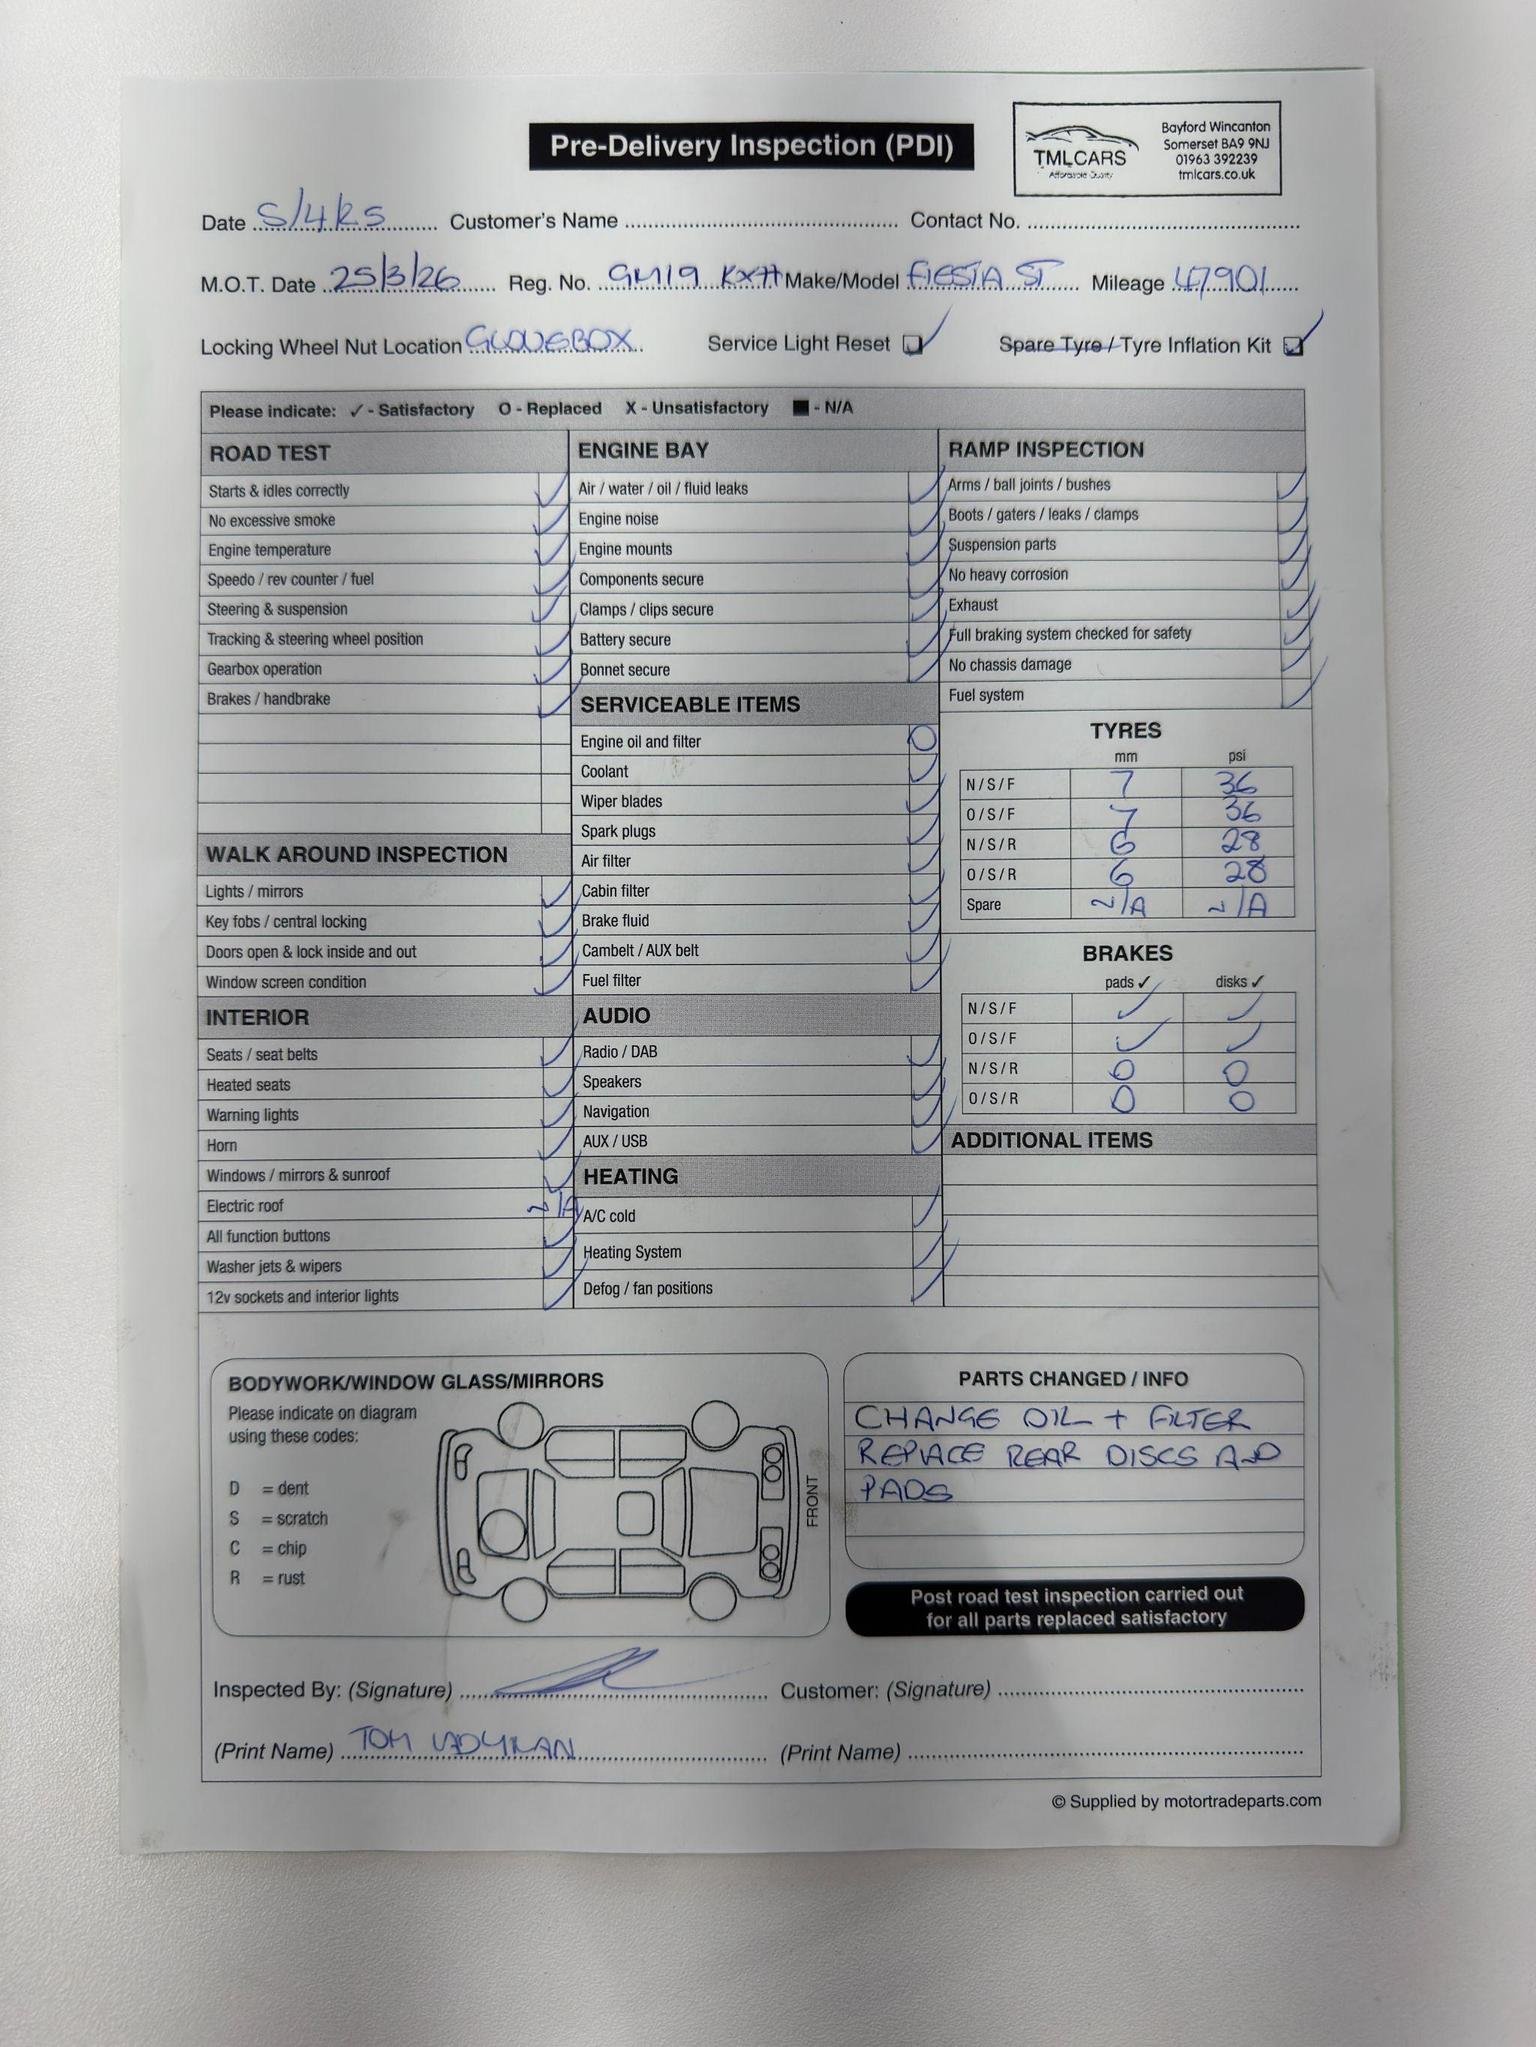 Pre-Delivery Inspection (PDI)
TMLCARS
Affordable Quality
Bayford Wincanton
Somerset BA9 9NJ
01963 392239
tmlcars.co.uk
Date 5/4/25 Customer's Name Contact No.
M.O.T. Date 25/3/26 Reg. No. GM19 KXH Make/Model FIESTA ST Mileage 47901
Locking Wheel Nut Location GLOVEBOX Service Light Reset ✓ Spare Tyre / Tyre Inflation Kit ✓
Please indicate: ✓ - Satisfactory O - Replaced X - Unsatisfactory ■ - N/A
ROAD TEST
Starts & idles correctly ✓
No excessive smoke ✓
Engine temperature ✓
Speedo / rev counter / fuel ✓
Steering & suspension ✓
Tracking & steering wheel position ✓
Gearbox operation ✓
Brakes / handbrake ✓
WALK AROUND INSPECTION
Lights / mirrors ✓
Key fobs / central locking ✓
Doors open & lock inside and out ✓
Window screen condition ✓
INTERIOR
Seats / seat belts ✓
Heated seats ✓
Warning lights ✓
Horn ✓
Windows / mirrors & sunroof ✓
Electric roof N/A
All function buttons ✓
Washer jets & wipers ✓
12v sockets and interior lights ✓
ENGINE BAY
Air / water / oil / fluid leaks ✓
Engine noise ✓
Engine mounts ✓
Components secure ✓
Clamps / clips secure ✓
Battery secure ✓
Bonnet secure ✓
SERVICEABLE ITEMS
Engine oil and filter O
Coolant ✓
Wiper blades ✓
Spark plugs ✓
Air filter ✓
Cabin filter ✓
Brake fluid ✓
Cambelt / AUX belt ✓
Fuel filter ✓
AUDIO
Radio / DAB ✓
Speakers ✓
Navigation ✓
AUX / USB ✓
HEATING
A/C cold ✓
Heating System ✓
Defog / fan positions ✓
RAMP INSPECTION
Arms / ball joints / bushes ✓
Boots / gaters / leaks / clamps ✓
Suspension parts ✓
No heavy corrosion ✓
Exhaust ✓
Full braking system checked for safety ✓
No chassis damage ✓
Fuel system ✓
TYRES
mm psi
N/S/F 7 36
O/S/F 7 36
N/S/R 6 28
O/S/R 6 28
Spare N/A N/A
BRAKES
pads ✓ disks ✓
N/S/F ✓ ✓
O/S/F ✓ ✓
N/S/R O O
O/S/R O O
ADDITIONAL ITEMS
BODYWORK/WINDOW GLASS/MIRRORS
Please indicate on diagram
using these codes:
D = dent
S = scratch
C = chip
R = rust
FRONT
PARTS CHANGED / INFO
CHANGE OIL + FILTER
REPLACE REAR DISCS AND
PADS
Post road test inspection carried out
for all parts replaced satisfactory
Inspected By: (Signature) Customer: (Signature)
(Print Name) TOM (Print Name)
© Supplied by motortradeparts.com